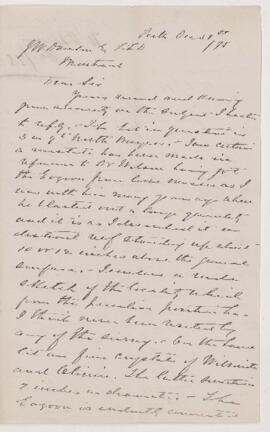 Perth Dec 31st /75
J W Dawson Esq LLD
Montreal
Dear Sir
Yours received and
your anxiety on the subject I hasten
to reply. The lot in question is
in 9th North Burgess. I am certain
a mistake has been made in
reference to Dr Wilson having got
the Eozoon from Lime Masses as I
was with him many years ago when
he blasted out a large quantity
and it is as I described it an
reef standing up about
10 or 12 inches above the general
surface. I enclose a rude
sketch of the locality which
from the peculiar position has
I think never been visited by
any of the survey. On the same
lot are fine crystals of Wilsonite
and Olivine. The latter sometimes
2 inches in diameter. The
Eozoon is evidently connected